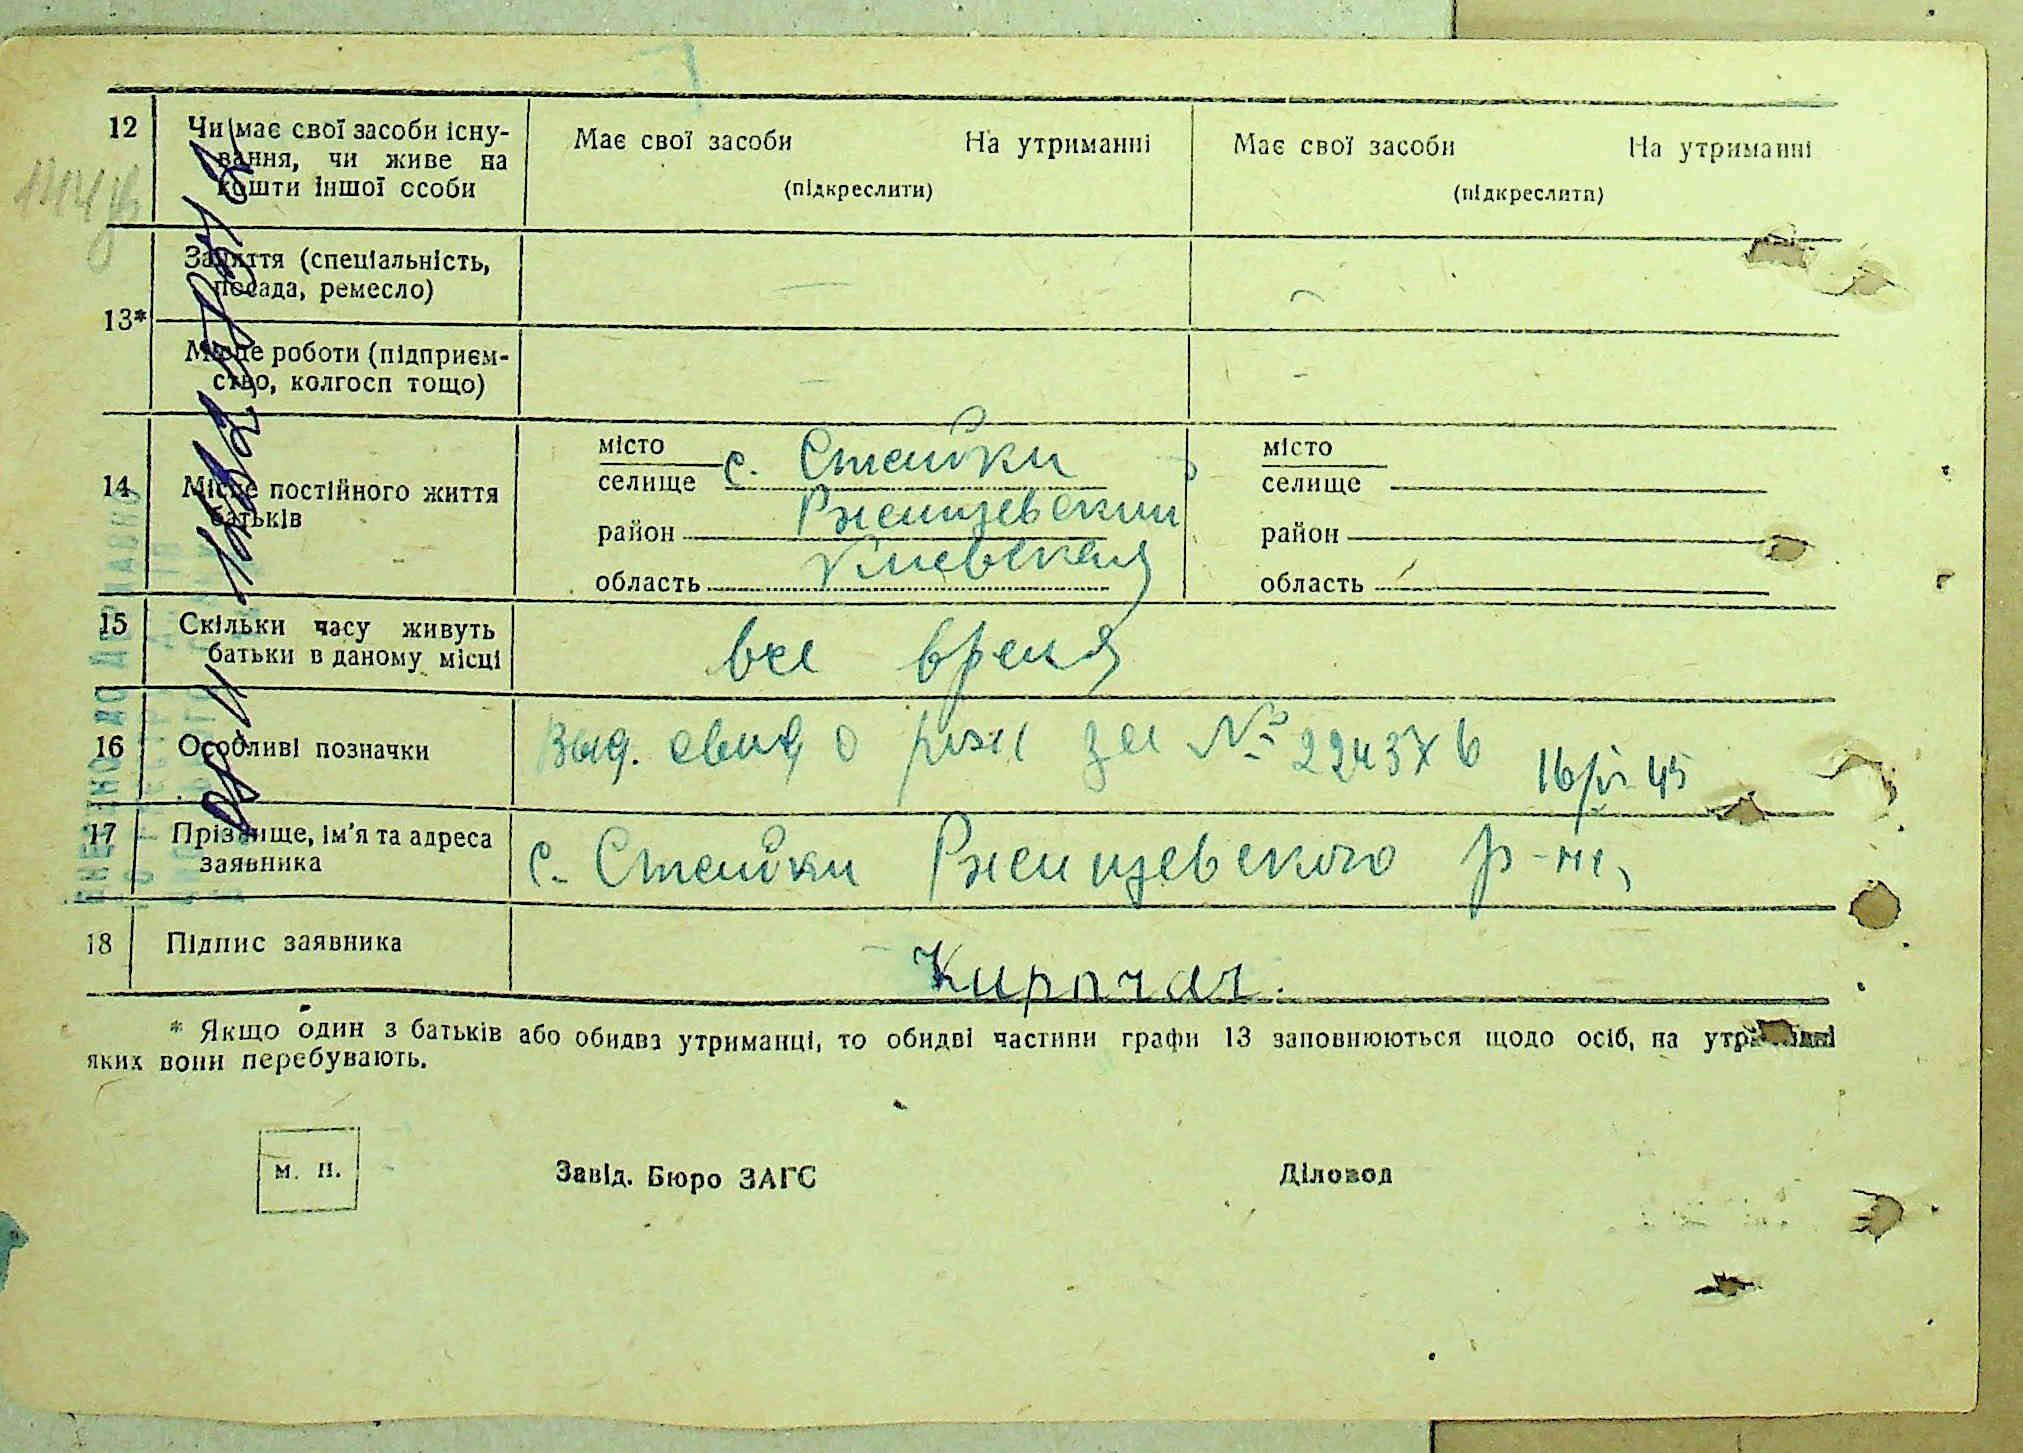 12 Чи має свої засоби існу-
вання, чи живе на
кошти іншої особи
Має свої засоби На утриманні
(підкреслити)
Має свої засоби На утриманні
(підкреслити)
13*
Заняття (спеціальність,
посада, ремесло)
Місце роботи (підприєм-
ство, колгосп тощо)
14 Місце постійного життя
батьків
місто
селище с. Стайки
район Ржищевский
область Киевская
місто
селище
район
область
15 Скільки часу живуть
батьки в даному місці
все время
16 Особливі позначки
Выд. свид о рож за № 224376 16/VI-45
17 Прізвище, ім'я та адреса
заявника
с. Стайки Ржищевского р-на,
18 Підпис заявника
* Якщо один з батьків або обидва утриманці, то обидві частини графи 13 заповнюються щодо осіб, на утриманні
яких вони перебувають.
м. п. Завід. Бюро ЗАГС Діловод